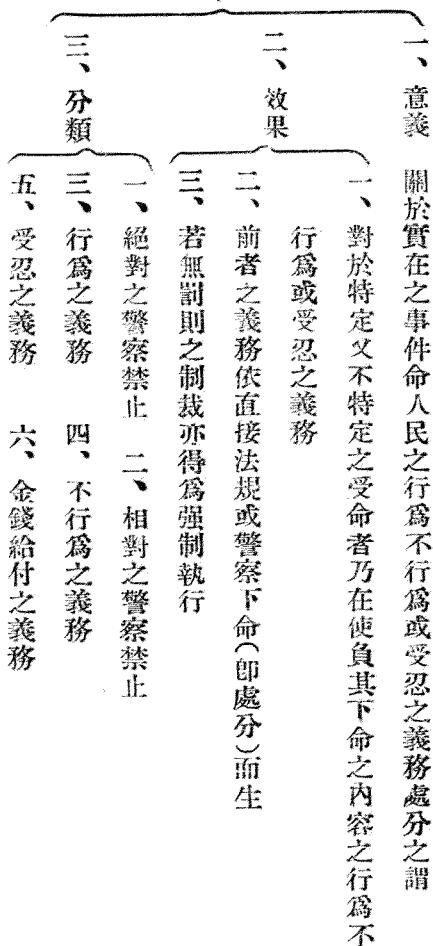 一、意義　關於實在之事件命人民之行爲不行爲或受忍之義務處分之謂
二、效果
一、對於特定又不特定之受命者乃在使負其下命之內容之行爲不
行爲或受忍之義務
二、前者之義務依直接法規或警察下命(卽處分)而生
三、若無罰則之制裁亦得爲强制執行
三、分類
一、絕對之警察禁止　二、相對之警察禁止
三、行爲之義務　四、不行爲之義務
五、受忍之義務　六、金錢給付之義務